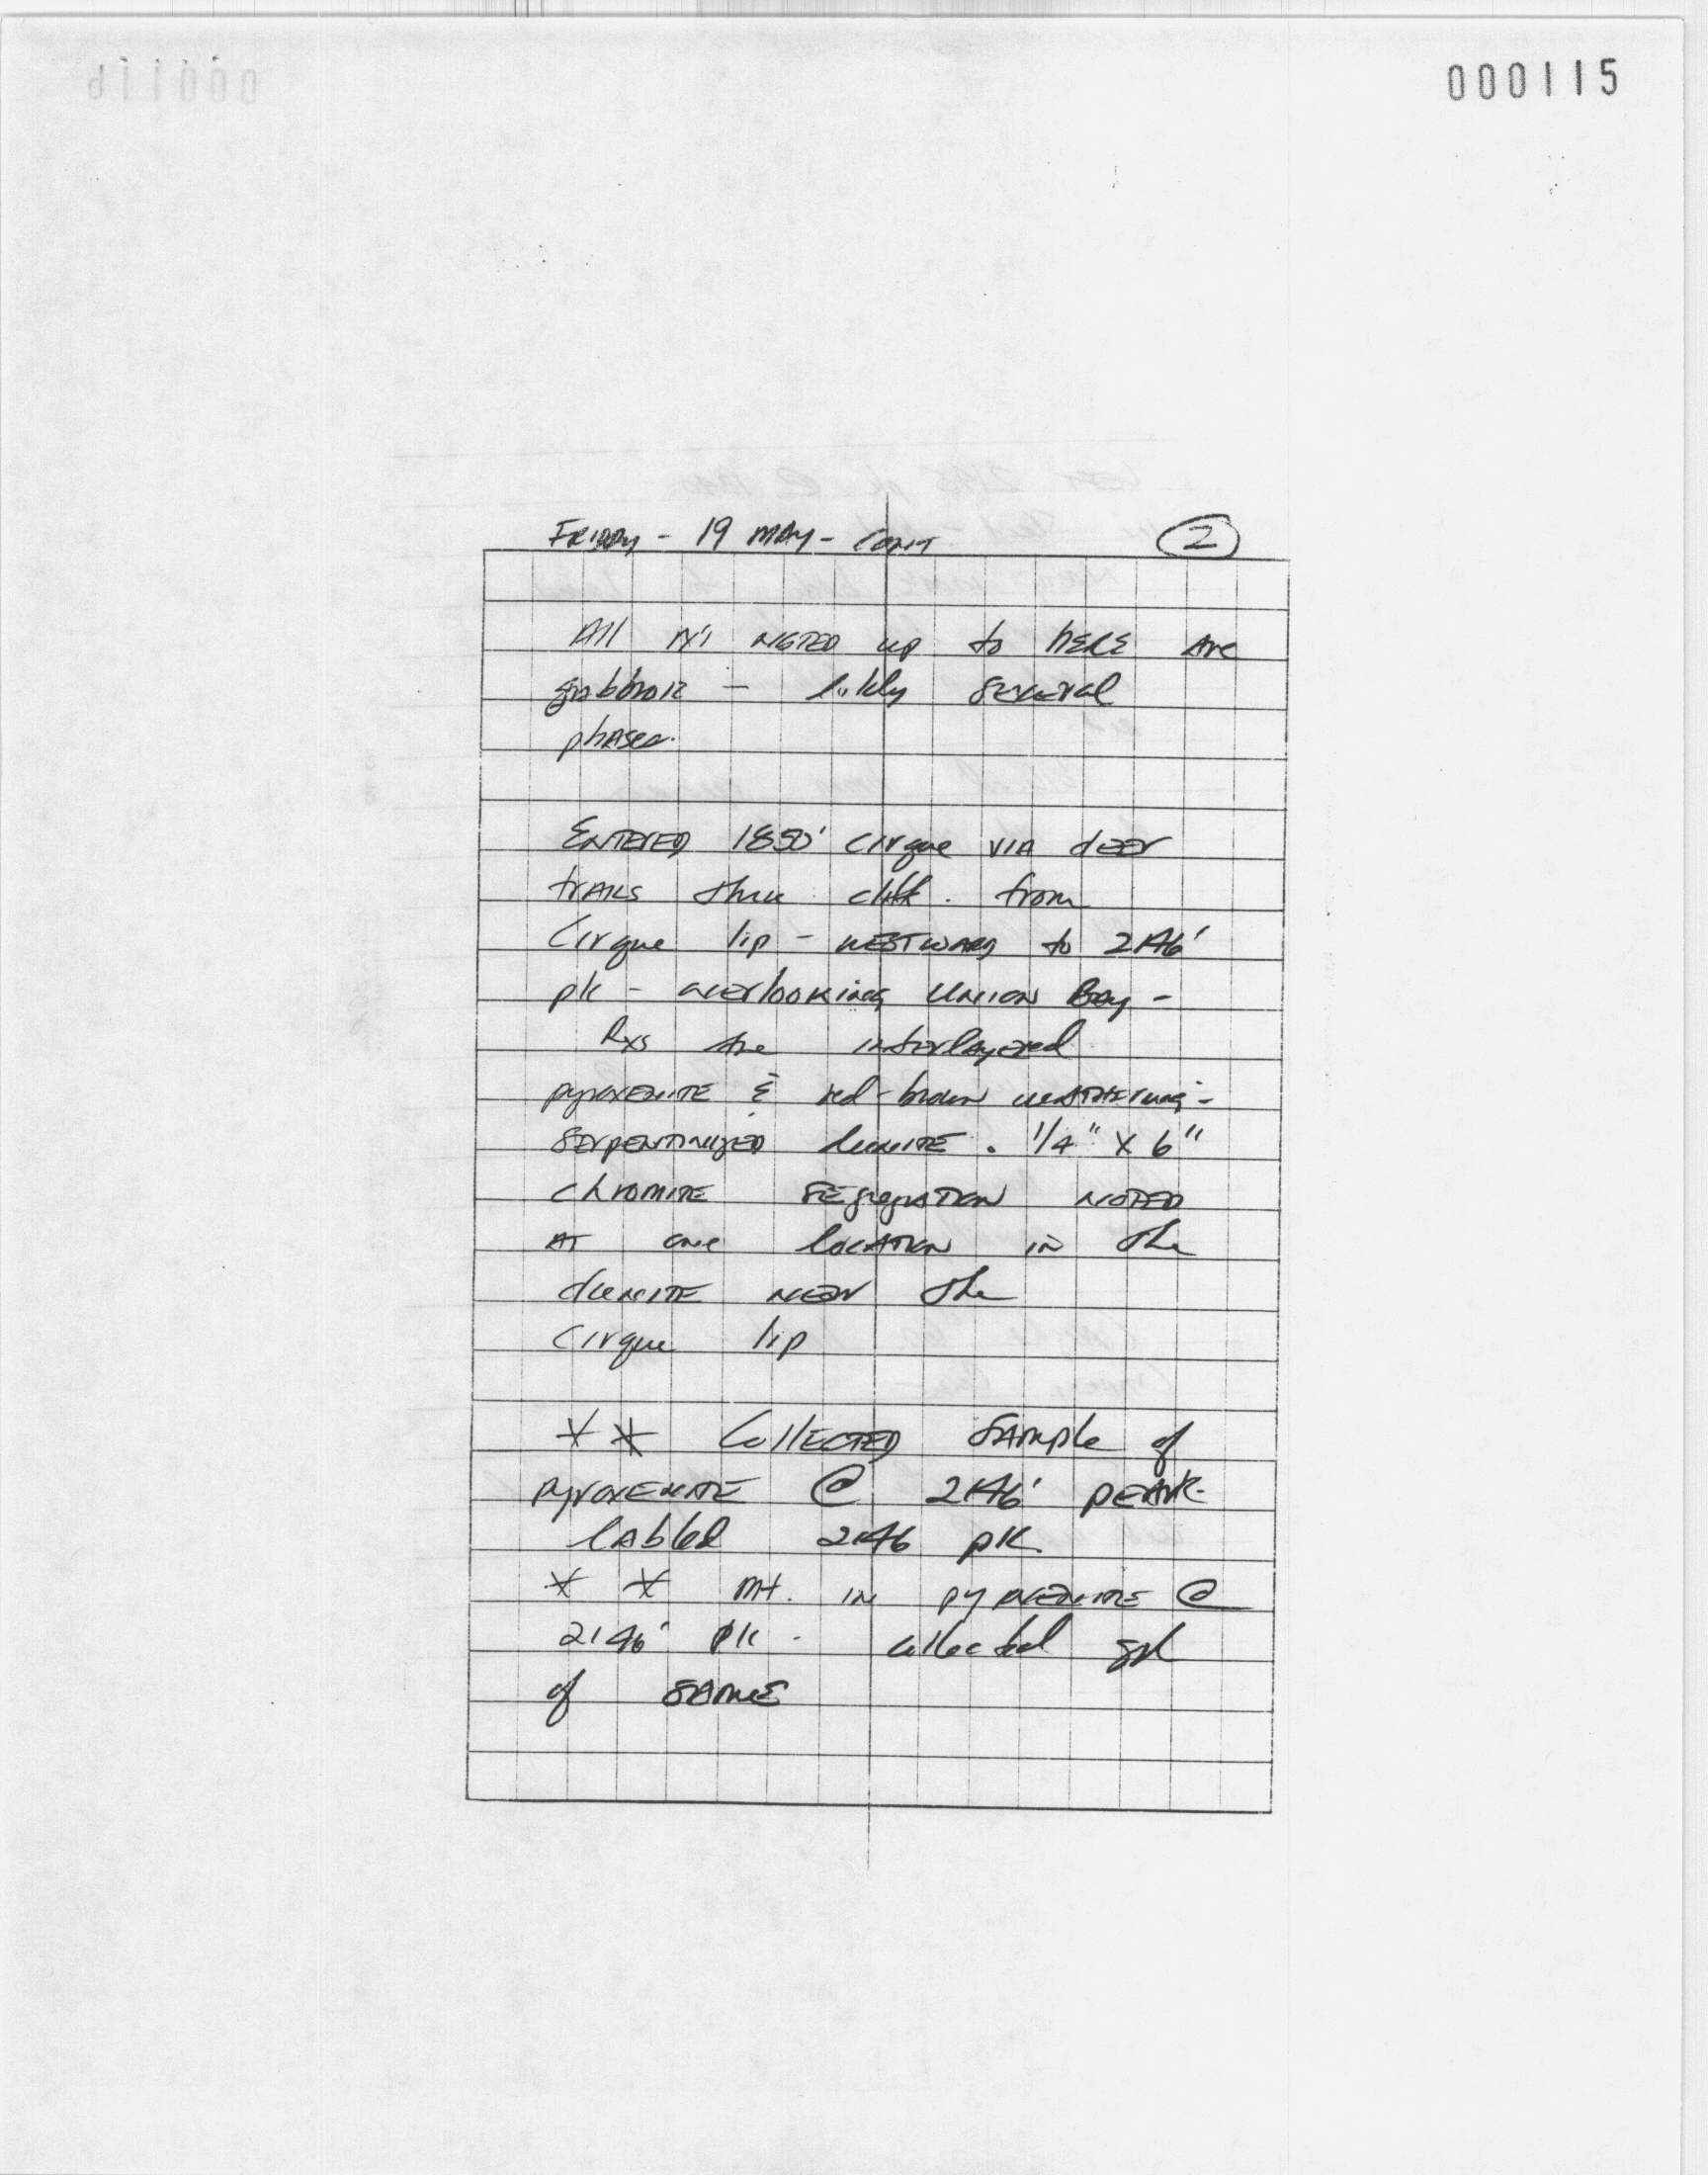 000115
FRIDAY - 19 MAY - CONT. 2
All rx's NOTED up to HERE Are
gabbroic - likly SEVERAL
phases.
ENTERED 1850' cirque VIA deer
trails thru cliff. from
Cirque lip - WESTWARD to 2146'
pk - overlooking UNION Bay -
Rxs are interlayered
pyroxENITE & red-brown weathering -
SERPENTINIZED dunite. 1/4" X 6"
chromite SEgregation NOTED
AT one location in the
dunite near the
Cirque lip
** COLLECTED SAmple of
pyroxENITE @ 2146' PEAK
lAbled 2146 pk
** mt. IN pyroxenite @
2146' pk. collected spl
of SAME